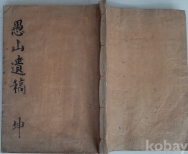 愚山遺稿 坤
kobay